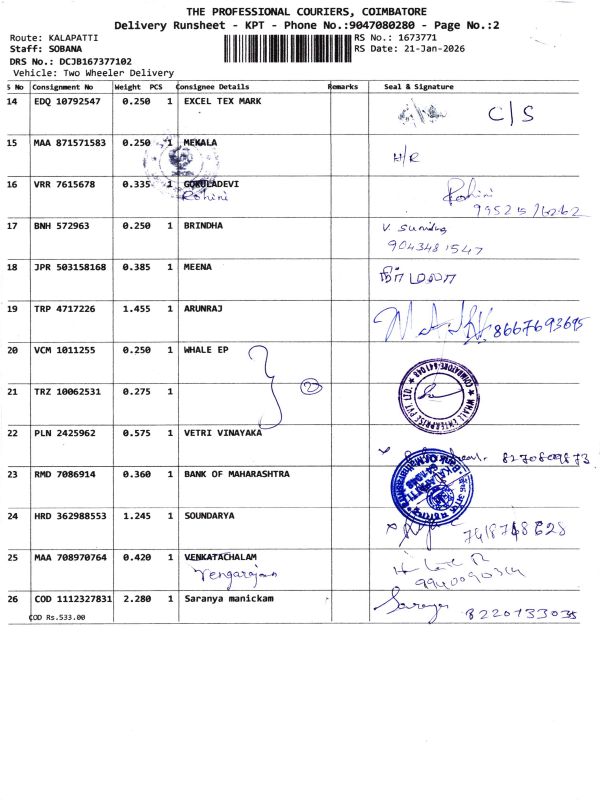 THE PROFESSIONAL COURIERS, COIMBATORE
Delivery Runsheet - KPT - Phone No.:9047080280 - Page No.:2
Route: KALAPATTI
RS No.: 1673771
Staff: SOBANA
RS Date: 21-Jan-2026
DRS No.: DCJB167377102
Vehicle: Two Wheeler Delivery
S No Consignment No Weight PCS Consignee Details Remarks Seal & Signature
14 EDQ 10792547 0.250 1 EXCEL TEX MARK C/S
15 MAA 871571583 0.250 1 MEKALA H/R
16 VRR 7615678 0.335 1 GOKULADEVI Rohini
Rohini
17 BNH 572963 0.250 1 BRINDHA V. Sumithra
9043481547
18 JPR 503158168 0.385 1 MEENA
19 TRP 4717226 1.455 1 ARUNRAJ 8667693695
20 VCM 1011255 0.250 1 WHALE EP
21 TRZ 10062531 0.275 1 2
22 PLN 2425962 0.575 1 VETRI VINAYAKA
23 RMD 7086914 0.360 1 BANK OF MAHARASHTRA
24 HRD 362988553 1.245 1 SOUNDARYA
25 MAA 708970764 0.420 1 VENKATACHALAM
Vengarajan
26 COD 1112327831 2.280 1 Saranya manickam Saranya 8220733035
COD Rs.533.00